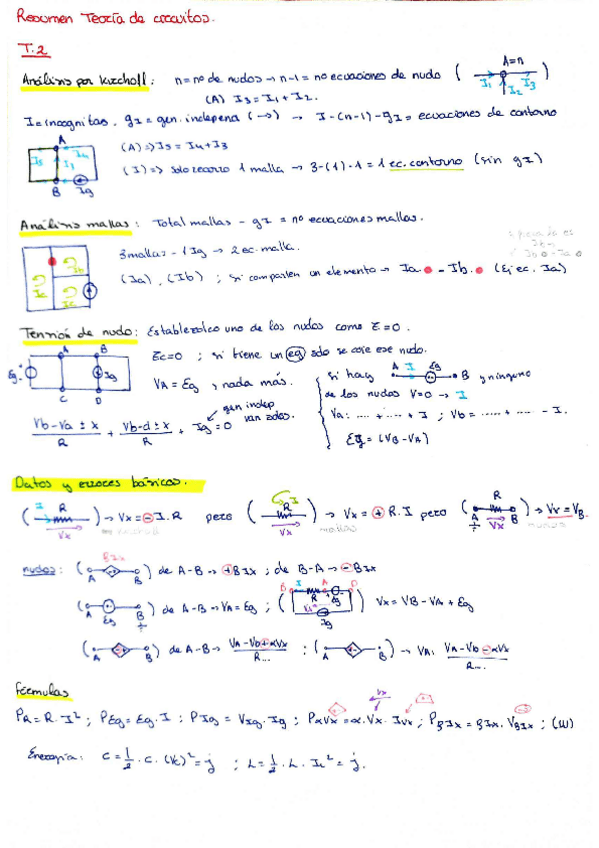 Resumen Teoría de circuitos.
T.2
Análisis por Kirchoff: n = nº de nudos → n-1 = nº ecuaciones de nudo ( A=n I1 I2 I3 )
(A) I3 = I1 + I2.
I = incognitas. gI = gen. independ (→) → I-(n-1)-gI = ecuaciones de contorno
A
(A) => I5 = I4 + I3
(I) => solo recorro 1 malla → 3-(1)-1 = 1 ec. contorno (sin gI)
B Ig
Análisis mallas: Total mallas - gI = nº ecuaciones mallas.
3 mallas - 1 Ig → 2 ec. malla.
(Ia), (Ib) ; si comparten un elemento → Ia - Ib. (Ej ec. Ia)
Tensión de nudo: Establezco uno de los nudos como E=0.
A B
Ec=0 ; si tiene un eg solo se coge ese nudo.
Eg Ig
VA = Eg, nada más.
C D
si hay A I Eg B y ninguno
de los nudos V=0 → I
Va: ... + ... + I ; Vb = ... + ... - I.
Eg = (VB - VA)
Vb-Va ± x / R + Vb-d ± x / R + Ig = 0
gen indep
van solos.
Datos y errores básicos.
( I R Vx ) → Vx = - I.R pero ( I R Vx ) → Vx = + R.I pero ( A R B Vx ) → Vx = VB-
mallas
nudos
nudos: ( A BIx B ) de A-B → +BIx ; de B-A → -BIx
( A B ) de A-B → VA = Eg ; ( B I A D R Eg Vx Ig ) Vx = VB - VA + Eg
( A B ) de A-B → VA-Vb+αVx / R... ; ( A B ) → VA: VA-Vb-αVx / R...
Fórmulas
PR = R.I² ; PEg = Eg.I ; PIg = VIg.Ig ; PαVx = α.Vx.IVx ; PβIx = βIx.VβIx ; (W)
Energía: C = 1/2 . C. (Vc)² = j ; L = 1/2 . L. IL² = j.